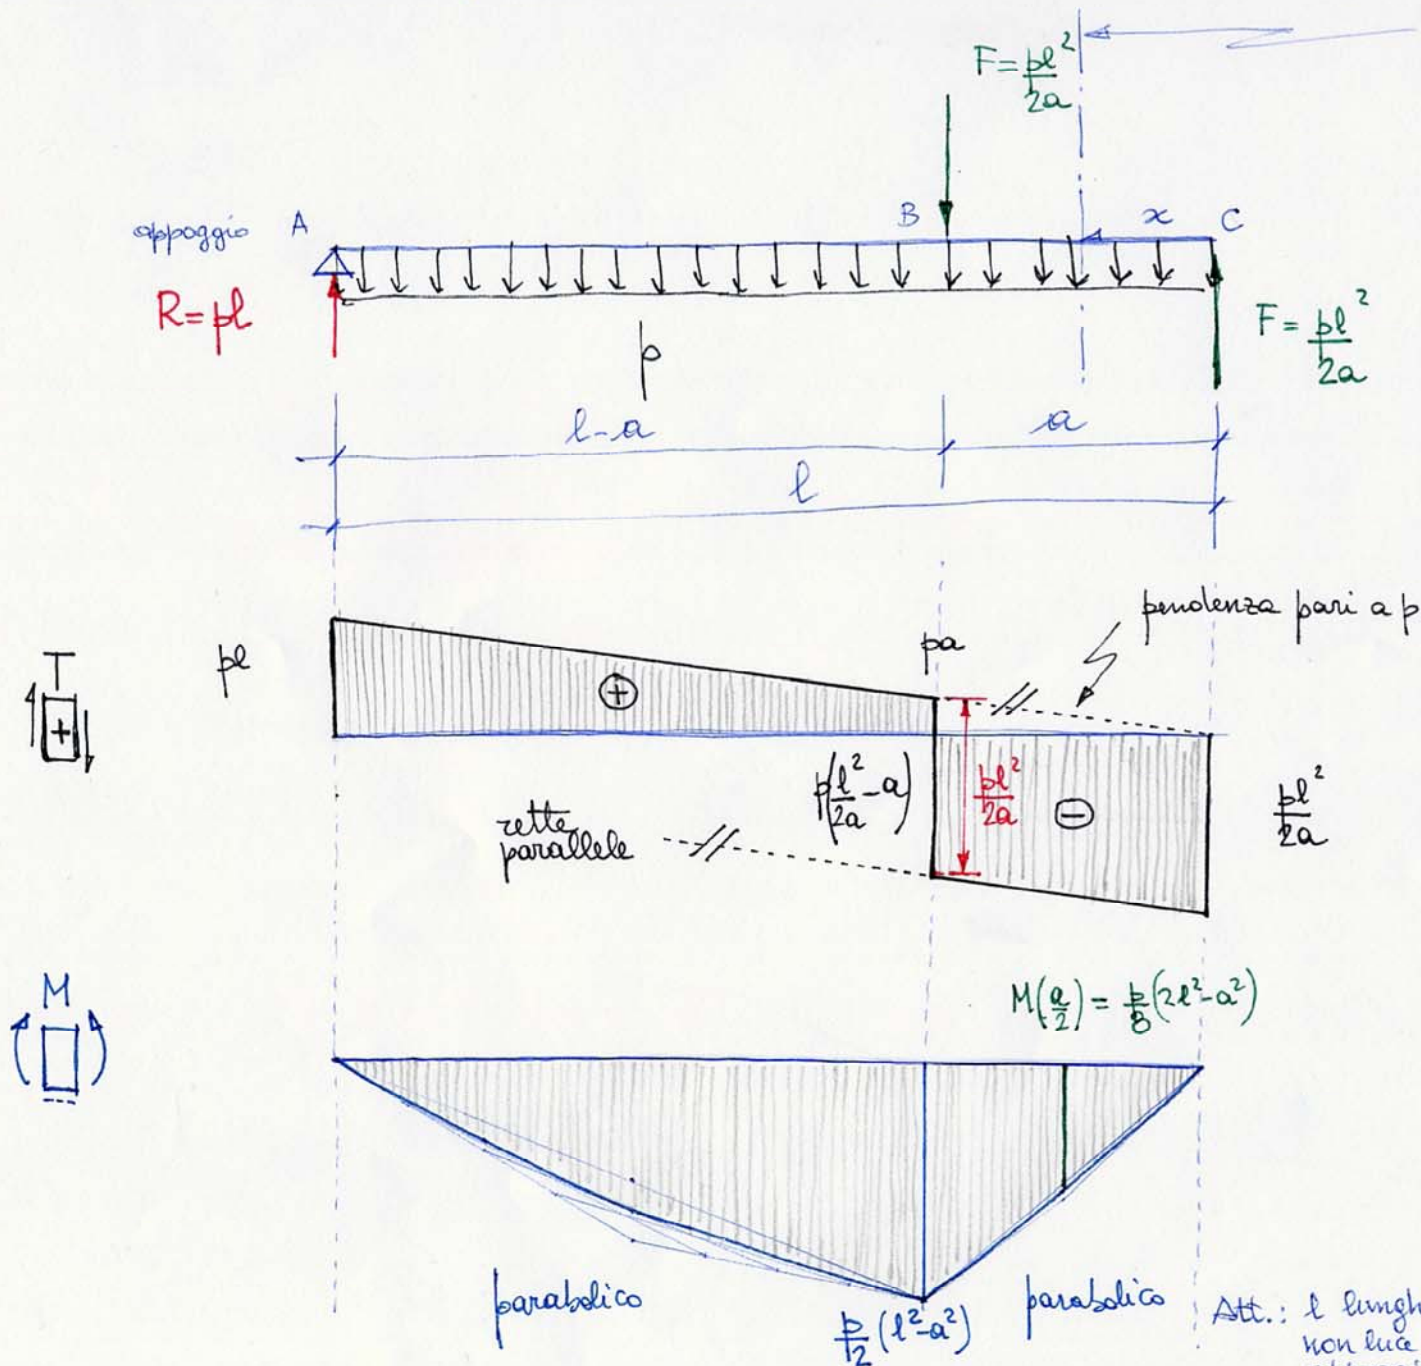 F = pl²/2a
appoggio A B x C
R = pl
F = pl²/2a
p
l-a a
l
pendenza pari a p
T
+
pl
pa
+
p(l²/2a - a)
pl²/2a
−
pl²/2a
rette
parallele
M
M(a/2) = p/8 (2l²-a²)
parabolico
p/2 (l²-a²)
parabolico
Att.: l lungh
non luce